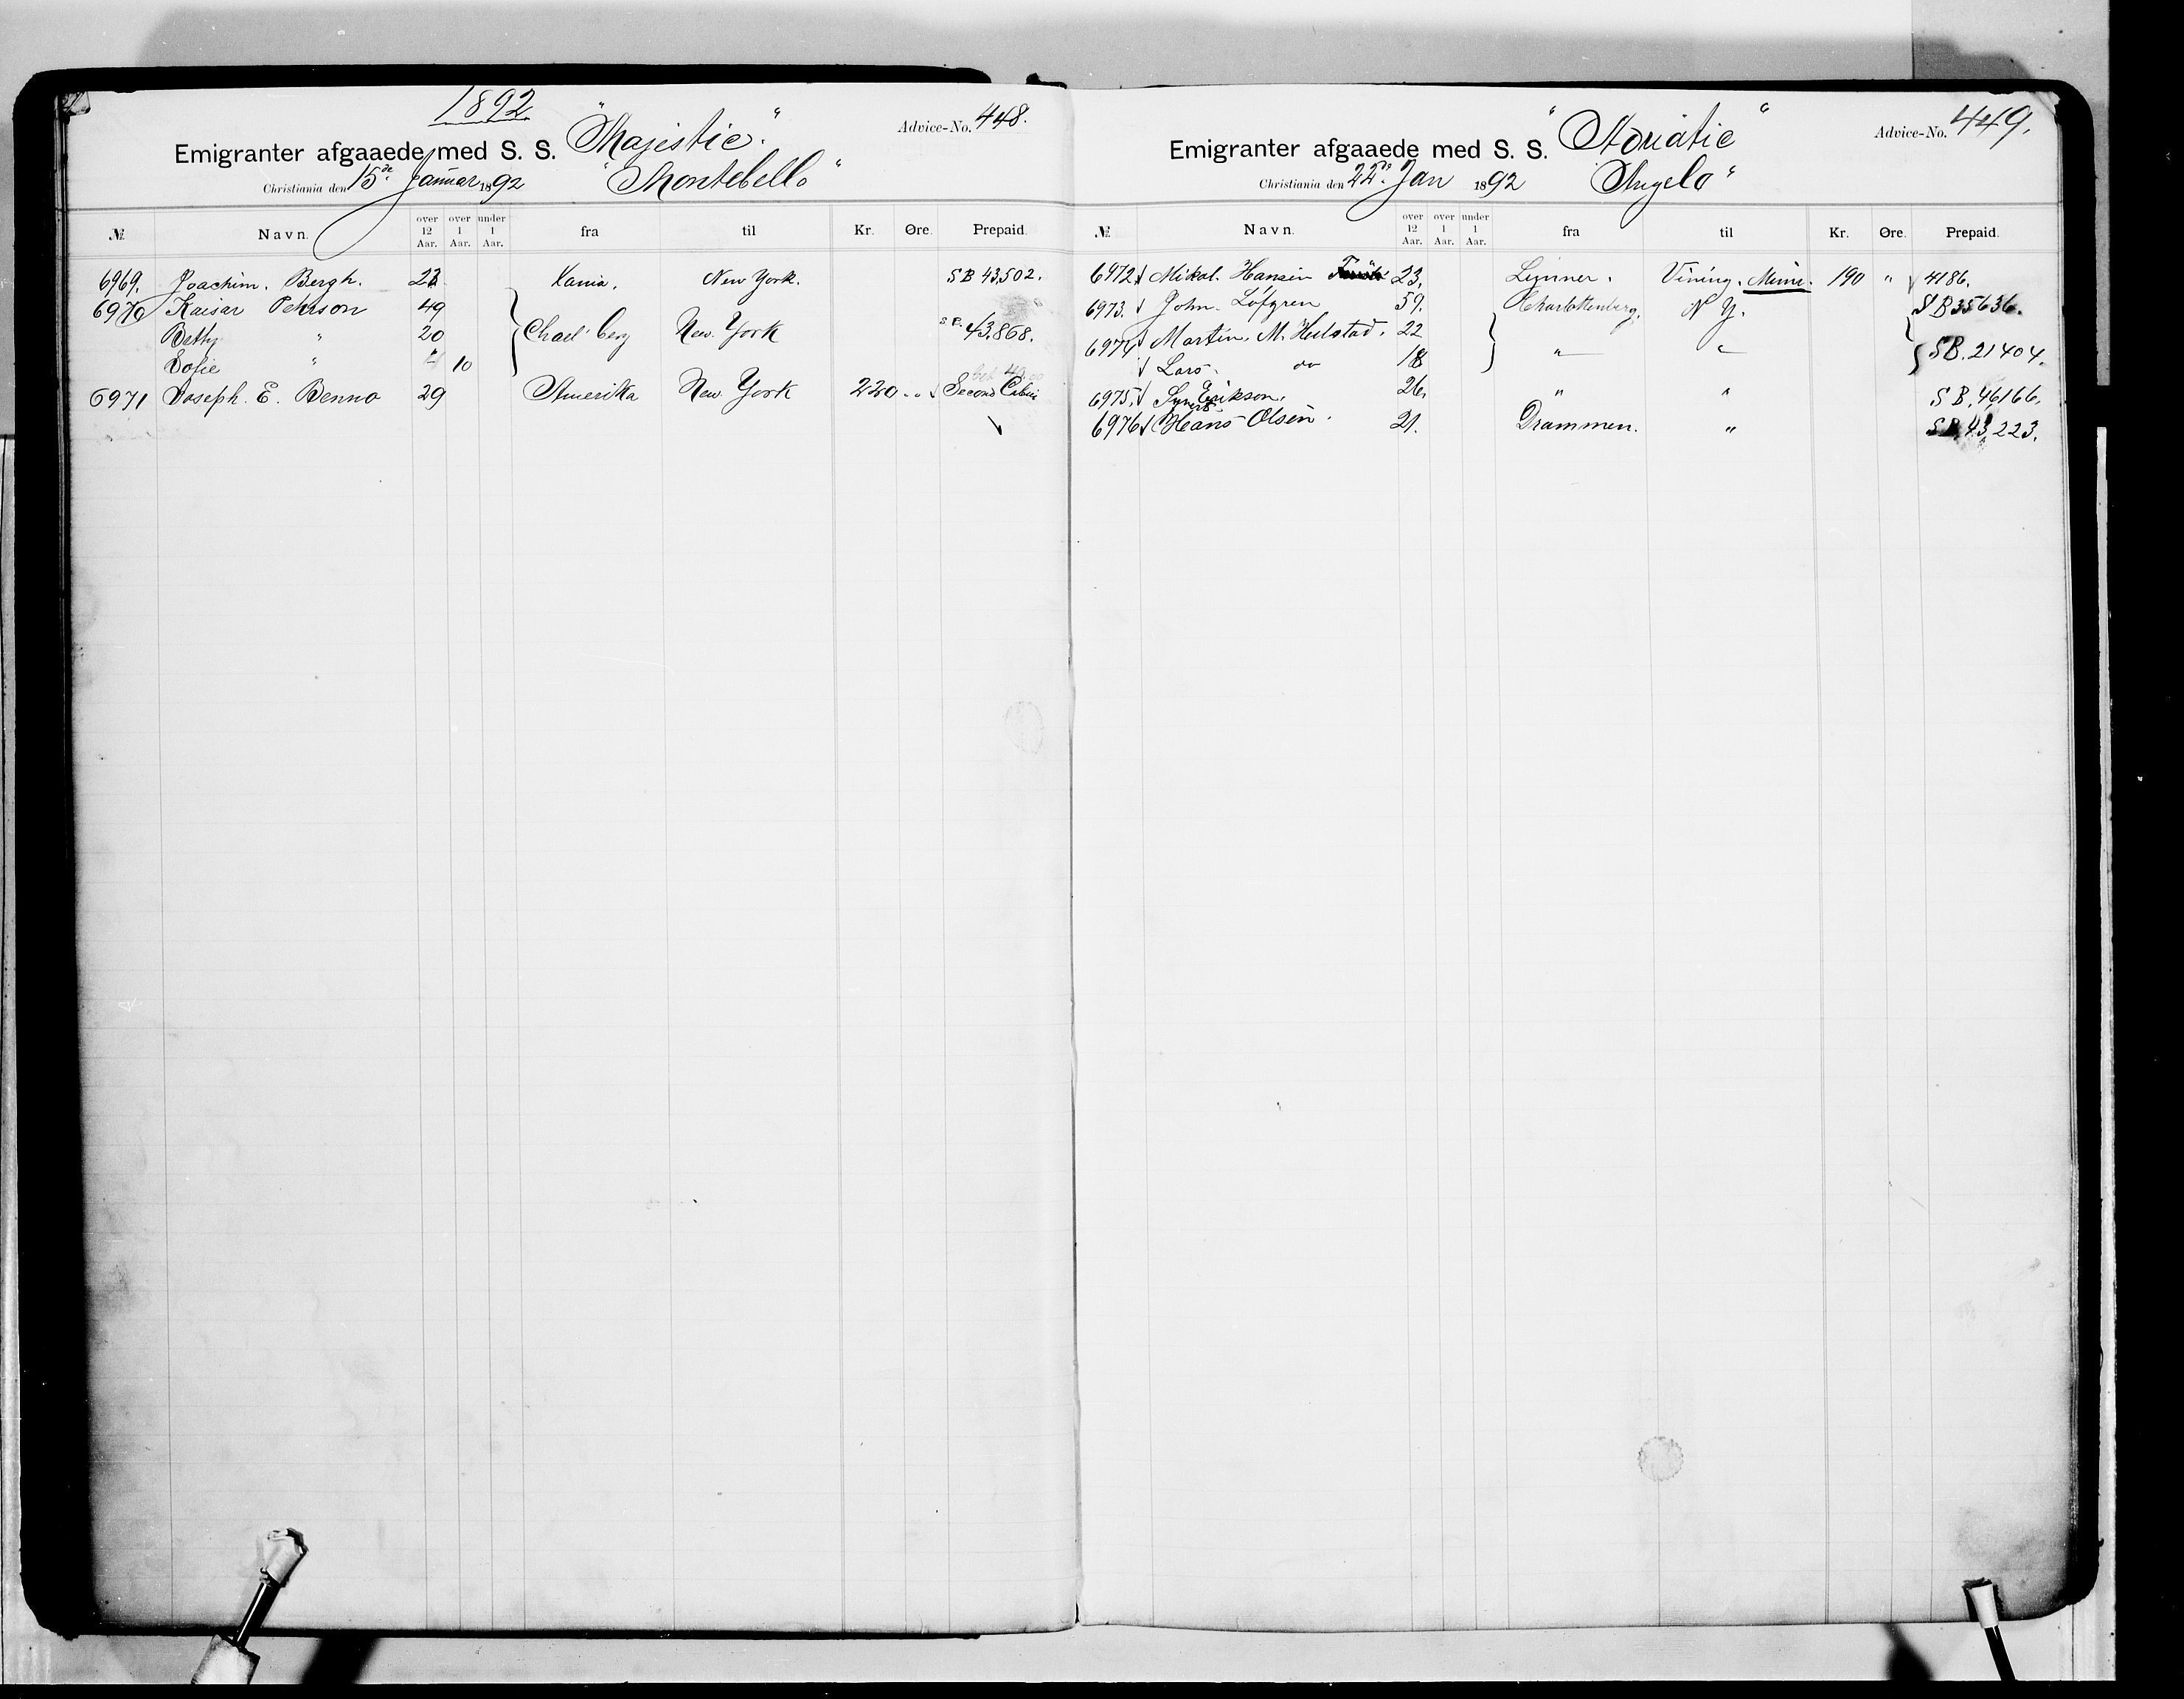 1892.
Emigranter afgaaede med S. S. "Majestic."
Advice-No. 448.
Christiania den 15de Januar 1892 "Montebello"
№ Navn. over 12 Aar. over 1 Aar. under 1 Aar. fra til Kr. Øre. Prepaid.
6969. Joachim. Bergh. 23 Xania. New York. SB 43,502.
6970 Kaisar Pehrson 49
Betty " 20 Charl'berg New. York S.B. 43,868.
Sofie " 10
6971 Joseph. E. Benno 29 Amerika New York 220 " Second Cabin
Emigranter afgaaede med S. S. "Adriatic"
Advice-No. 449.
Christiania den 22de Jan 1892 Angelo"
№ Navn. over 12 Aar. over 1 Aar. under 1 Aar. fra til Kr. Øre. Prepaid.
6972 Mikal. Hansen 23. Lunner. Vining. Minn. 190 " 4186.
6973. John. Löfgren 59. Charlottenberg. N Y. SB 35636.
6974 Martin. M. Hulstad. 22
Lars do 18 " " SB. 21404.
6975. Synert Erikson. 26. " " SB. 46166.
6976 Hans Olsen. 21. Drammen. " SB. 43,223.